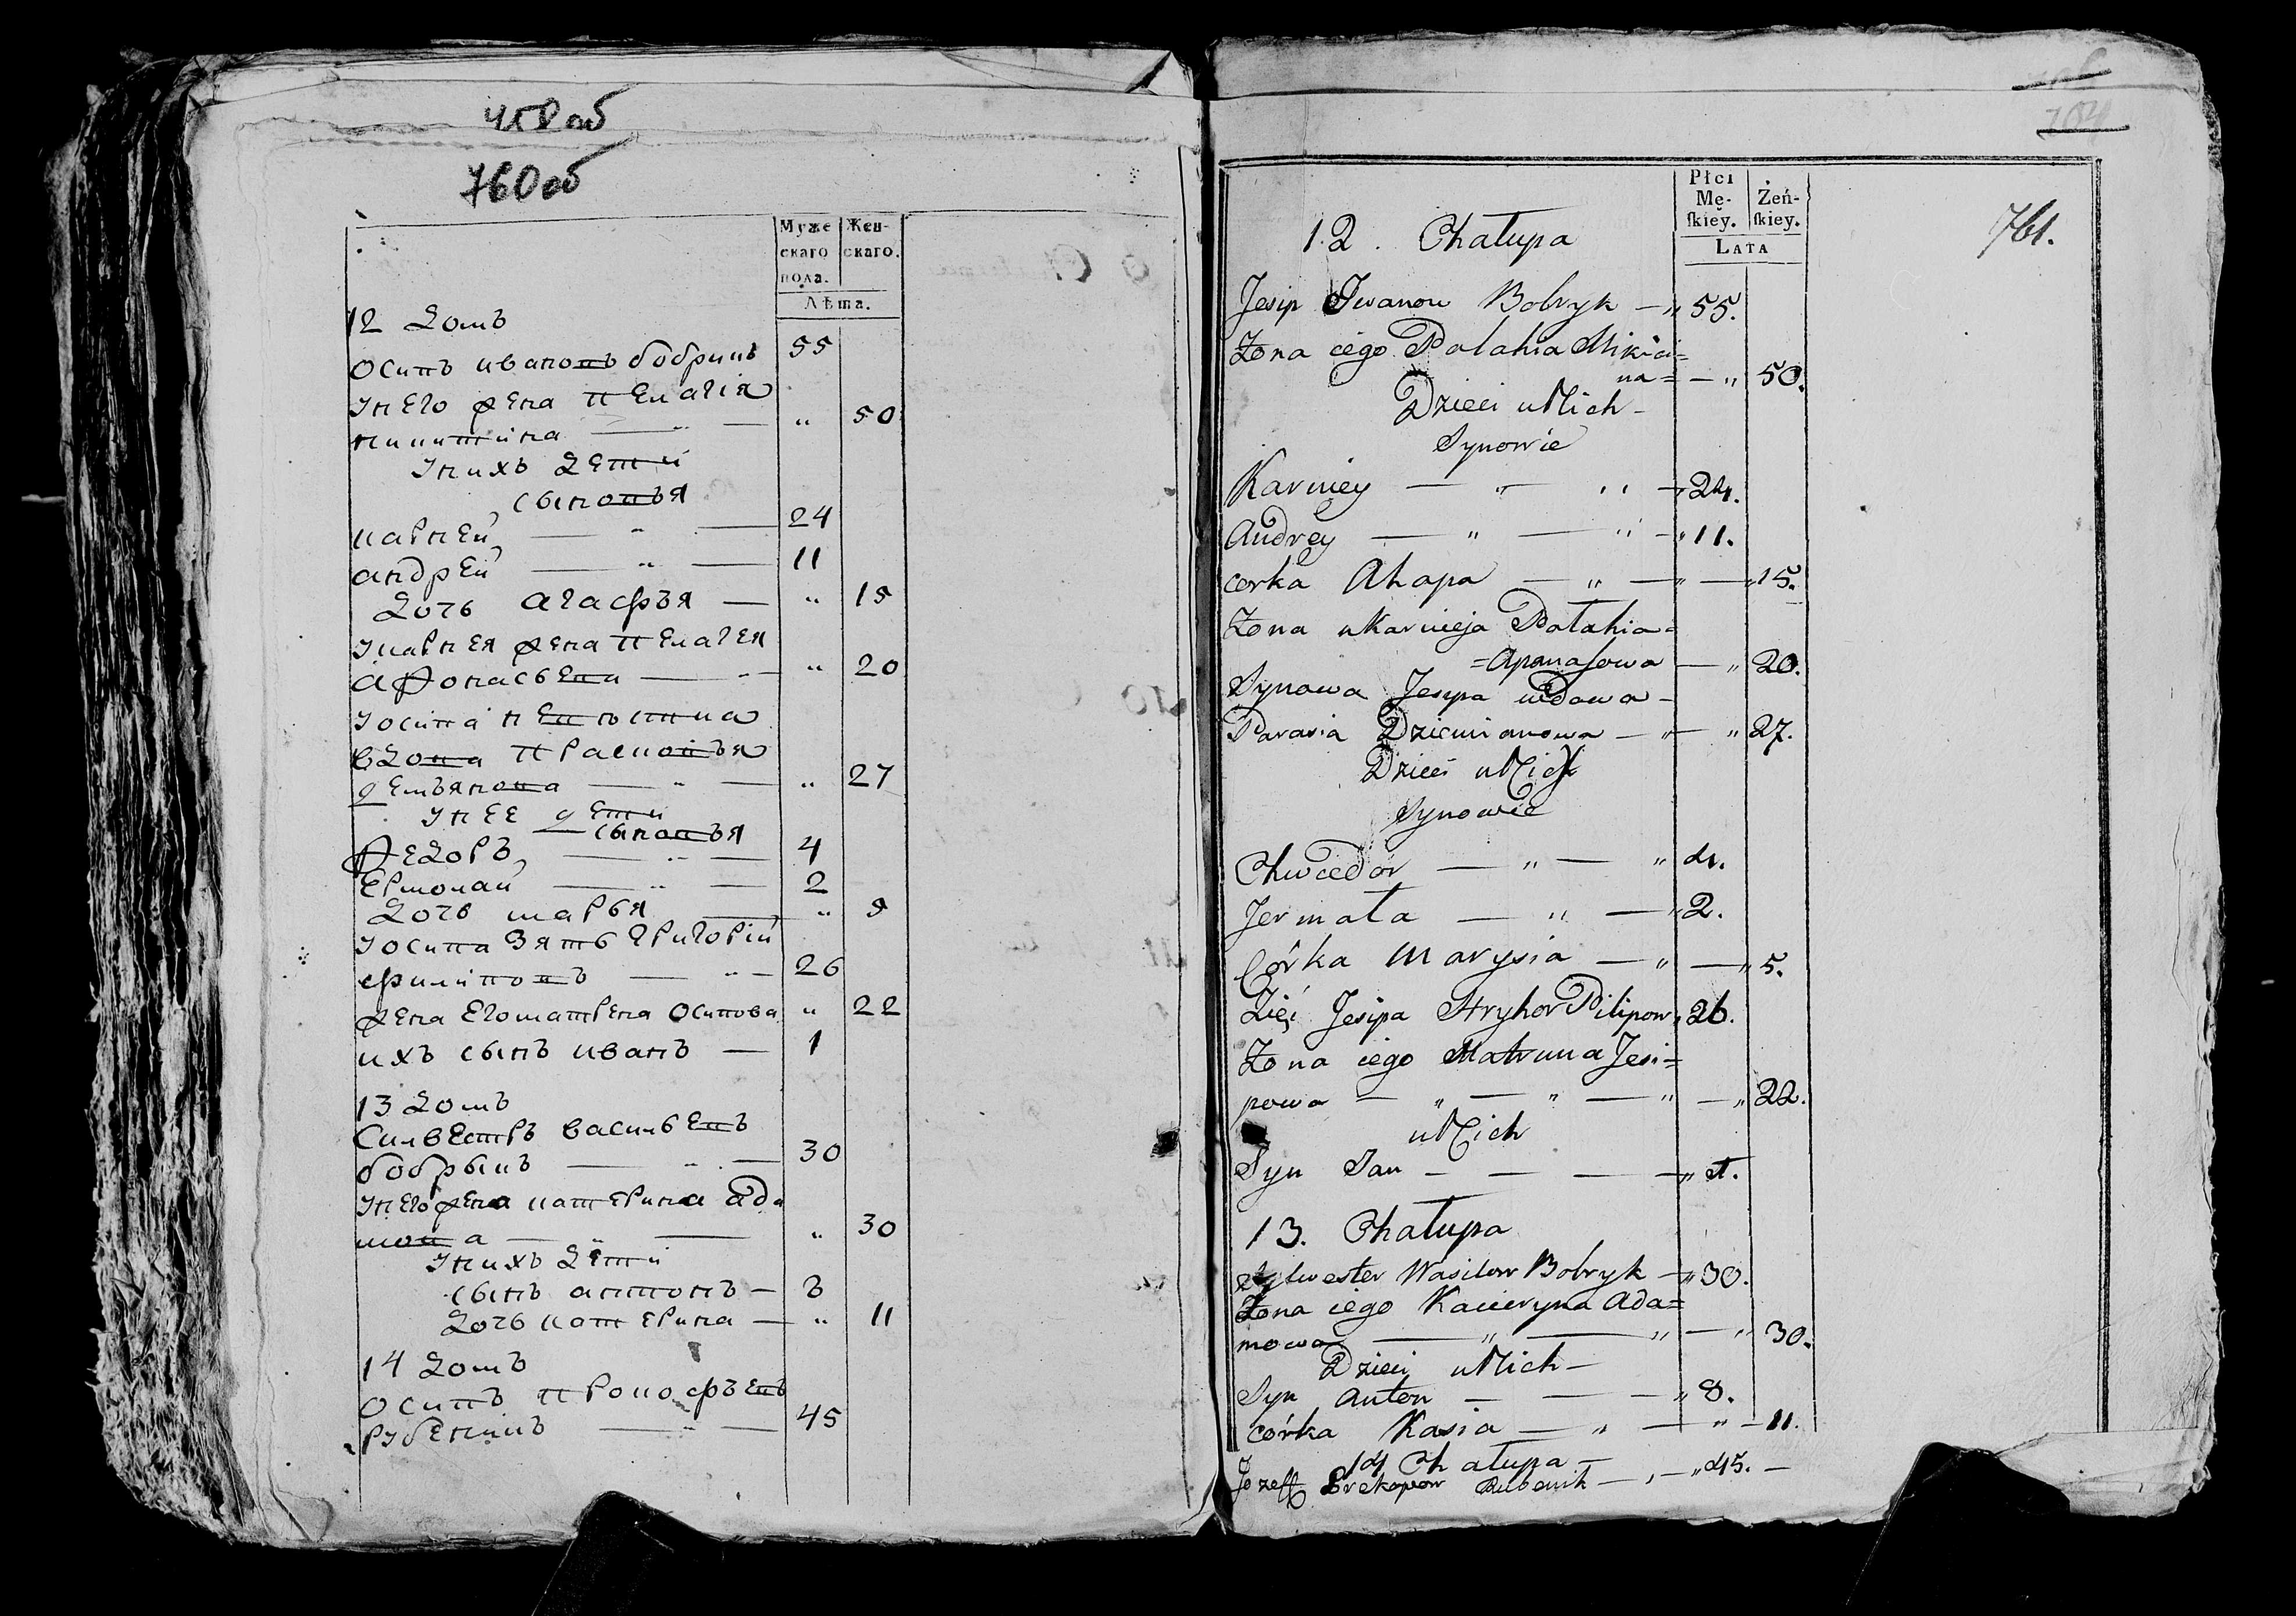 458 об
760 об
Муже
скаго
пола.
Жен-
скаго.
Лѣта.
12 домъ
осипъ ивановъ бобрикъ 55
унего жена пелагiя
никитина — " — " 50
унихъ дети
сыновья
карней — " — 24
андрей — " — 11
дочь агафья — " 15
укарнея жена пелагея
афонасьева — " — " 20
уосипа невестка
вдова прасковья
демьянова — " — " 27
унее дети
сыновья
федоръ — " — 4
ермолай — " — 2
дочь марья — " 5
уосипа зять григорiй
филиповъ — " — 26
жена его матрена осипова " 22
ихъ сынъ иванъ — 1
13 домъ
силвестръ васильевъ
бобрыкъ — " — 30
унего жена катерина ада
мова — " — " 30
унихъ дети
сынъ антонъ — 8
дочь катерина — " 11
14 домъ
осипъ прокофьевъ
рубеникъ — " — 45
704
761.
Płci
Mę-
skiey.
Żeń-
skiey.
LATA
12. Chałupa
Jesip Iwanow Bobryk — " 55.
Żona iego Pałahia Mikici=
na= — " 50.
Dzieci u Nich -
Synowie
Karniey — " " — 24.
Andrey — " — " — " 11.
corka Ahapa — " — " — " 15.
Żona u Karnieja Pałahia=
=Apanasowa — " 20.
Synowa Jesipa wdowa -
Parasia Dziemianowa — " — " 27.
Dzieci u Nich
Synowie
Chwiedor — " — " 4.
Jermała — " — " 2.
Córka Marysia — " — " 5.
Zięć Jesipa Hryhor Pilipow " 26.
Żona iego Matruna Jesi=
powa — " — " — " — " 22.
u Nich
Syn Jan — — — " 1.
13. Chałupa
Sylwester Wasilow Bobryk — " 30.
Żona iego Kacieryna Ada=
mowa — " — " — " 30.
Dzieci u Nich —
Syn Anton — — — " 8.
córka Kasia — " — " — 11.
14 Chałupa —
Jozeff Prokopow Rubenik — " — " 45. —